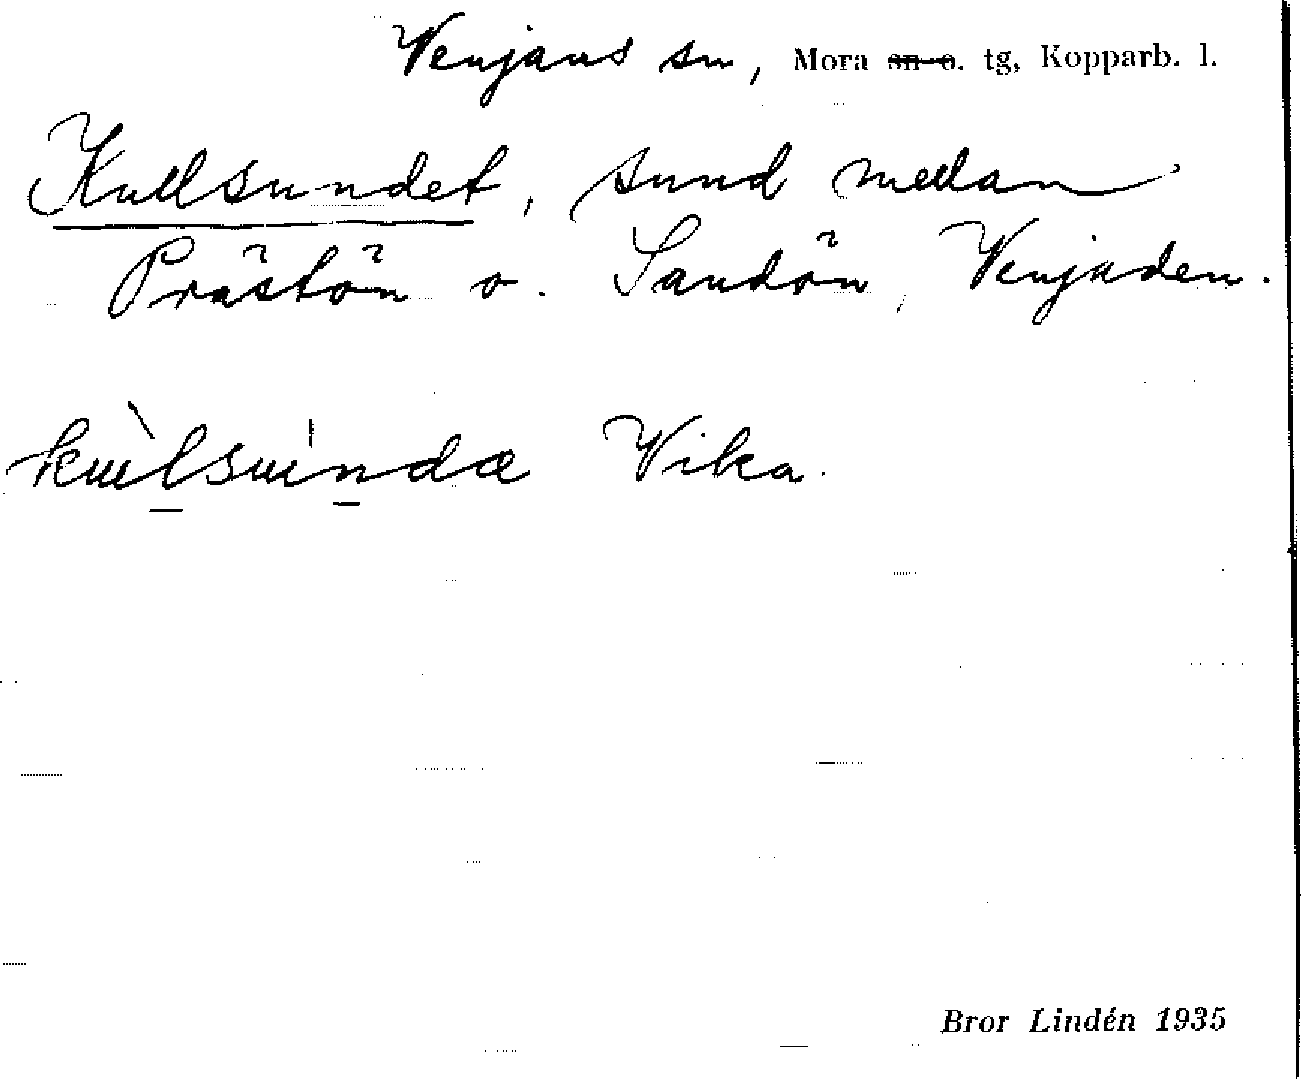 Venjans sn, Mora sn o. tg, Kopparb. l.
Kullsundet, sund mellan
Prästön o. Sandön, Venjaden.
Vika.
Bror Lindén 1935